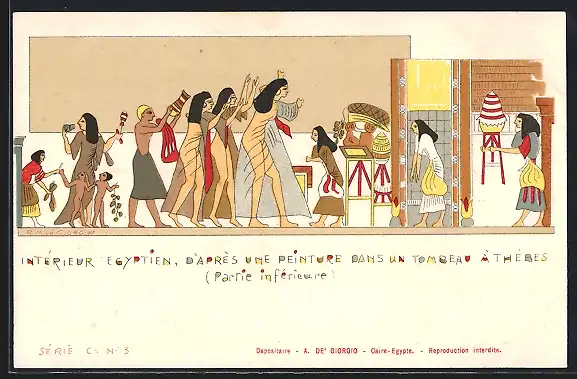 INTÉRIEUR EGYPTIEN, D'APRÈS UNE PEINTURE DANS UN TOMBEAU À THÈBES
(Partie inférieure)
SÉRIE C. N. 5
Dépositaire - A. DE' GIORGIO - Caire-Egypte. - Reproduction interdite.